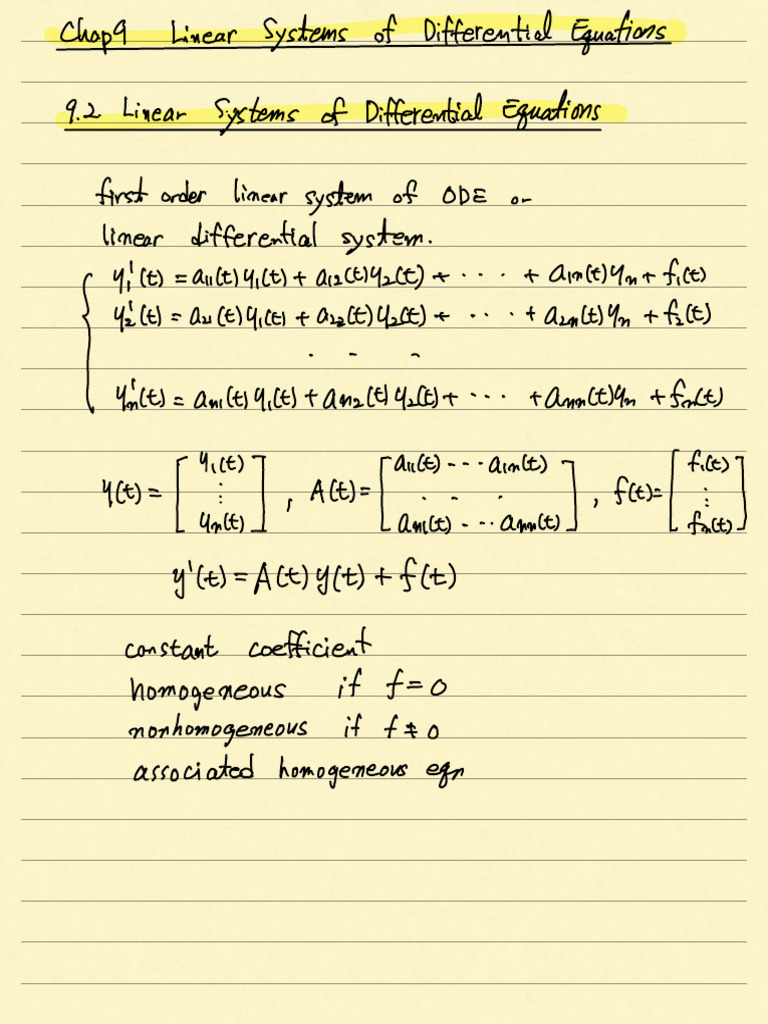 Chap9 Linear Systems of Differential Equations
9.2 Linear Systems of Differential Equations
first order linear system of ODE or
linear differential system.
y₁'(t) = a₁₁(t)y₁(t) + a₁₂(t)y₂(t) + ··· + a₁ₙ(t)yₙ + f₁(t)
y₂'(t) = a₂₁(t)y₁(t) + a₂₂(t)y₂(t) + ··· + a₂ₙ(t)yₙ + f₂(t)
. . .
yₙ'(t) = aₙ₁(t)y₁(t) + aₙ₂(t)y₂(t) + ··· + aₙₙ(t)yₙ + fₙ(t)
y(t) = [y₁(t) ⋮ yₙ(t)], A(t) = [a₁₁(t) ··· a₁ₙ(t) . . . aₙ₁(t) ··· aₙₙ(t)], f(t) = [f₁(t) ⋮ fₙ(t)]
y'(t) = A(t)y(t) + f(t)
constant coefficient
homogeneous if f = 0
nonhomogeneous if f ≠ 0
associated homogeneous eqn